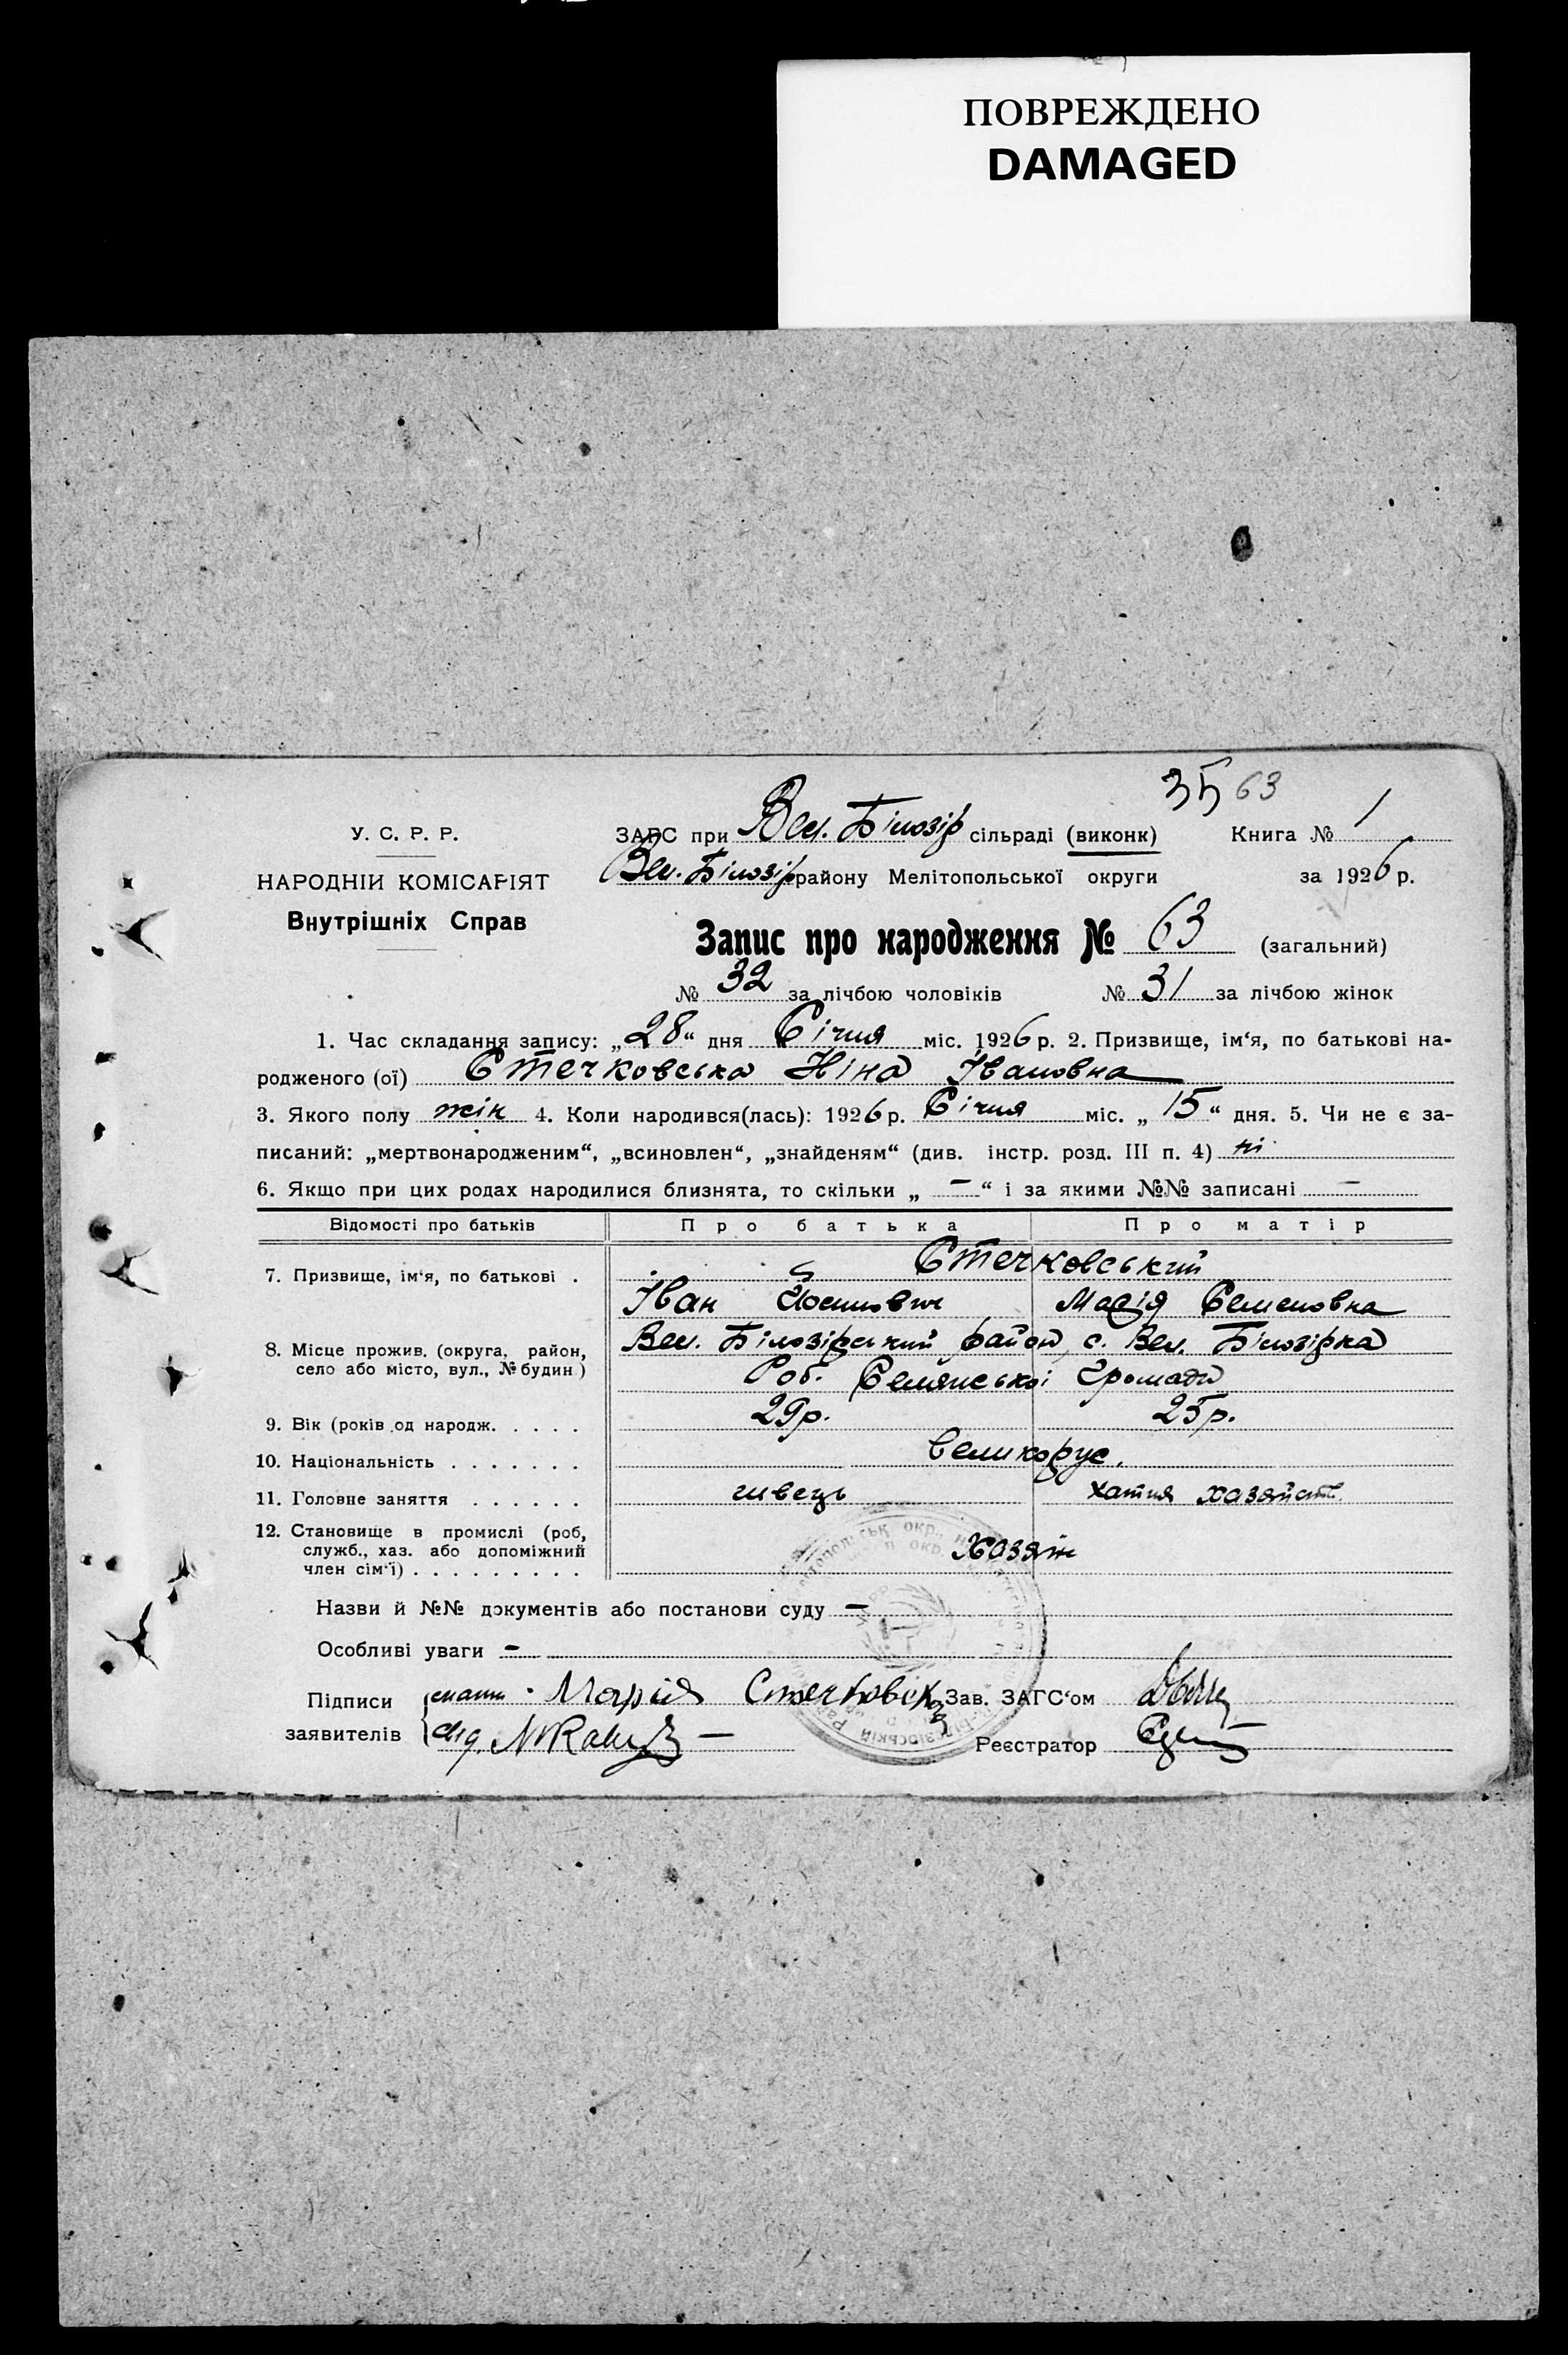 ПОВРЕЖДЕНО
DAMAGED
35 63
У. С. Р. Р.
НАРОДНІИ КОМІСАРІЯТ
Внутрішніх Справ
ЗАГС при Вел. Білозір сільраді (виконк) Книга № 1
Вел. Білозір району Мелітопольської округи за 1926 р.
Запис про народження № 63 (загальний)
№ 32 за лічбою чоловіків № 31 за лічбою жінок
1. Час складання запису: „28“ дня Січня міс. 1926 р. 2. Призвище, ім‘я, по батькові на-
родженого (ої) Стечковська Ніна Івановна
3. Якого полу жін 4. Коли народився(лась): 1926 р. Січня міс. „15“ дня. 5. Чи не є за-
писаний: „мертвонародженим“, „всиновлен“, „знайденям“ (див. інстр. розд. III п. 4) ні
6. Якщо при цих родах народилися близнята, то скільки „ — “ і за якими №№ записані —
Відомості про батьків Про батька Про матір
7. Призвище, ім‘я, по батькові . Стечковський
Іван Йосипович Марія Семеновна
8. Місце прожив. (округа, район, село або місто, вул., № будин) Вел. Білозірський район, с. Вел. Білозірка
Роб. Семянської Громади
9. Вік (років од народж. . . . . 29р. 25р.
10. Національність . . . . . . . великорус.
11. Головне заняття . . . . . . швець хатня хазяйств.
12. Становище в промислі (роб, служб., хаз. або допоміжний член сім‘ї) . . . . . . . . . Хазяін
Назви й №№ документів або постанови суду —
Особливі уваги —
Підписи заявителів мати Мария Стечковска Зав. ЗАГС‘ом
Реєстратор